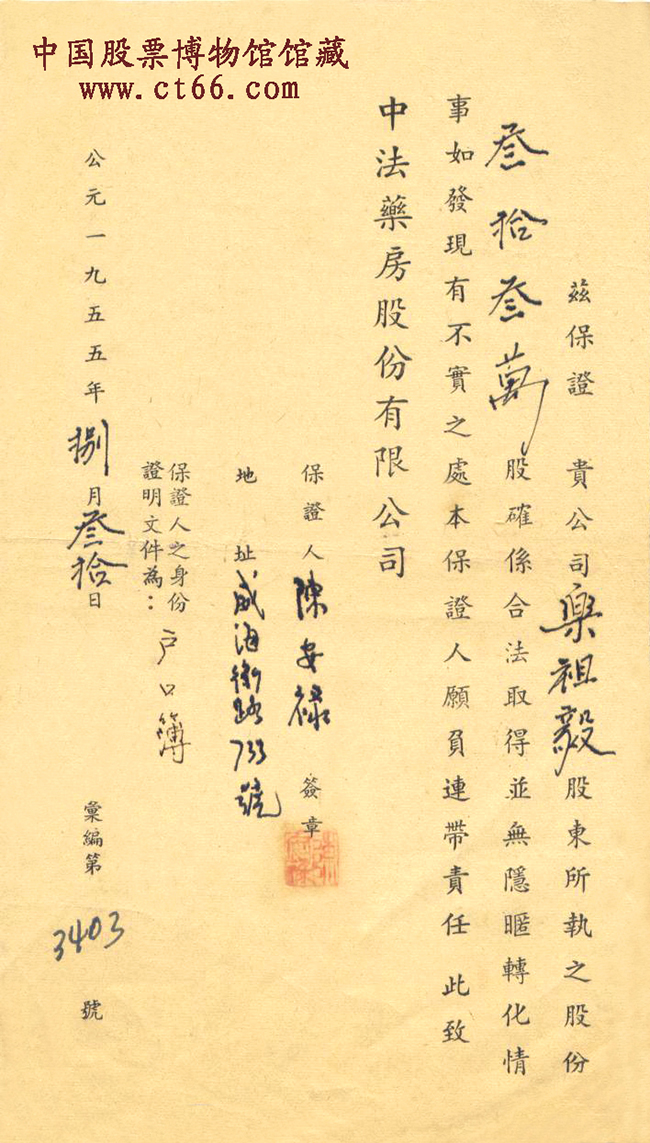 中国股票博物馆馆藏
www.ct66.com
茲保證 貴公司樂祖毅股東所執之股份
叁拾叁萬股確係合法取得並無隱匿轉化情
事如發現有不實之處本保證人願負連帶責任 此致
中法藥房股份有限公司
保證人 陳安祿 簽章
地址 威海衛路733號
保證人之身份
證明文件為：戶口簿
公元一九五五年捌月叁拾日
彙編第 3403 號